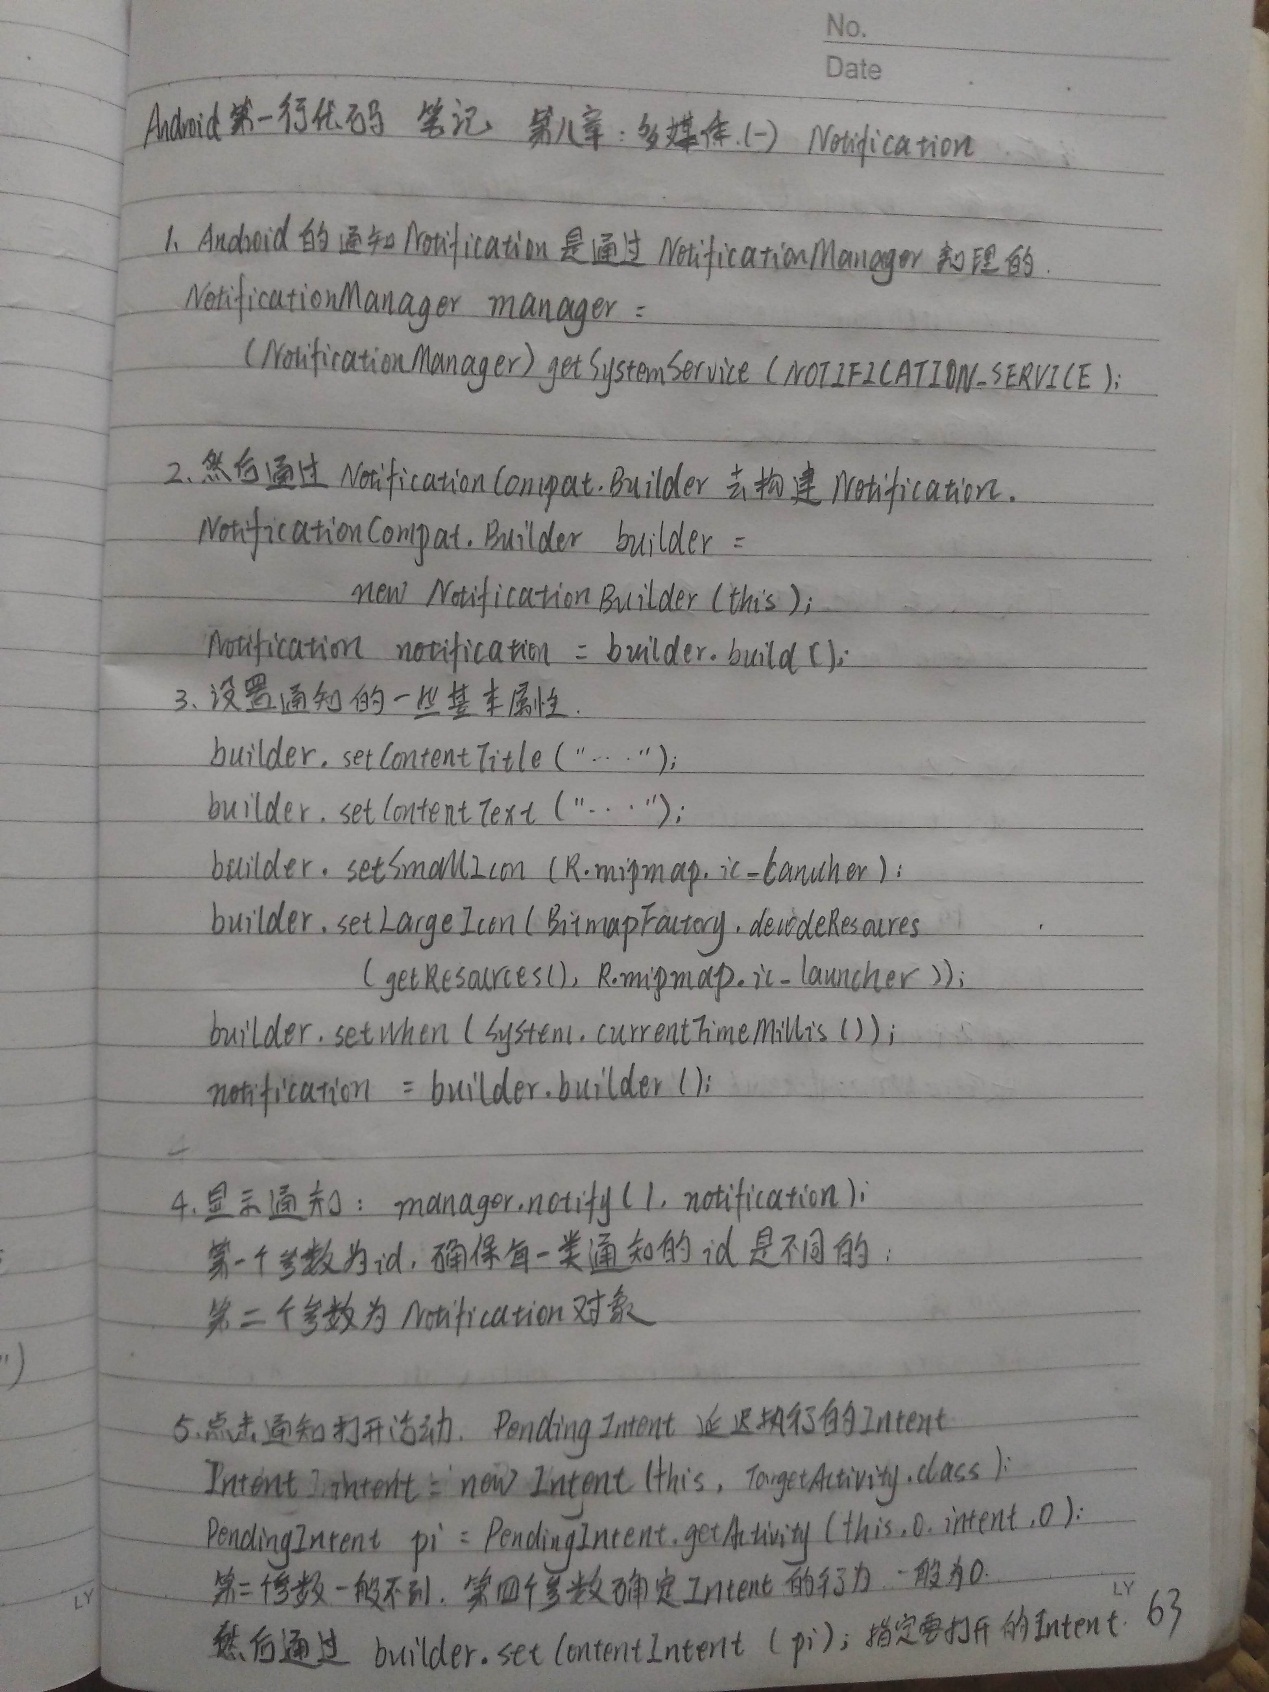 No.
Date
Android 第一行代码 笔记 第八章:多媒体.(一) Notification
1、Android 的通知Notification是通过NotificationManager 管理的.
NotificationManager manager =
(NotificationManager) getSystemService (NOTIFICATION_SERVICE);
2、然后通过 NotificationCompat.Builder 去构建 Notification.
NotificationCompat.Builder builder =
new NotificationBuilder (this);
Notification notification = builder.build();
3、设置通知的一些基本属性.
builder.setContentTitle ("····");
builder.setContentText ("····");
builder.setSmallIcon (R.mipmap.ic_lanucher);
builder.setLargeIcon (BitmapFactory.decodeResoures
(getResources(), R.mipmap.ic_launcher));
builder.setWhen (System.currentTimeMillis());
notification = builder.builder ();
4.显示通知: manager.notify (1, notification);
第一个参数为id,确保每一类通知的id是不同的;
第二个参数为 Notification对象
5.点击通知打开活动. PendingIntent 延迟执行的Intent
Intent intent = new Intent (this, TargetActivity.class);
PendingIntent pi = PendingIntent.getActivity (this,0,intent,0);
第二个参数一般不到,第四个参数确定Intent的行为,一般为0.
然后通过 builder.setContentIntent (pi); 指定要打开的Intent.
LY 63
")
LY